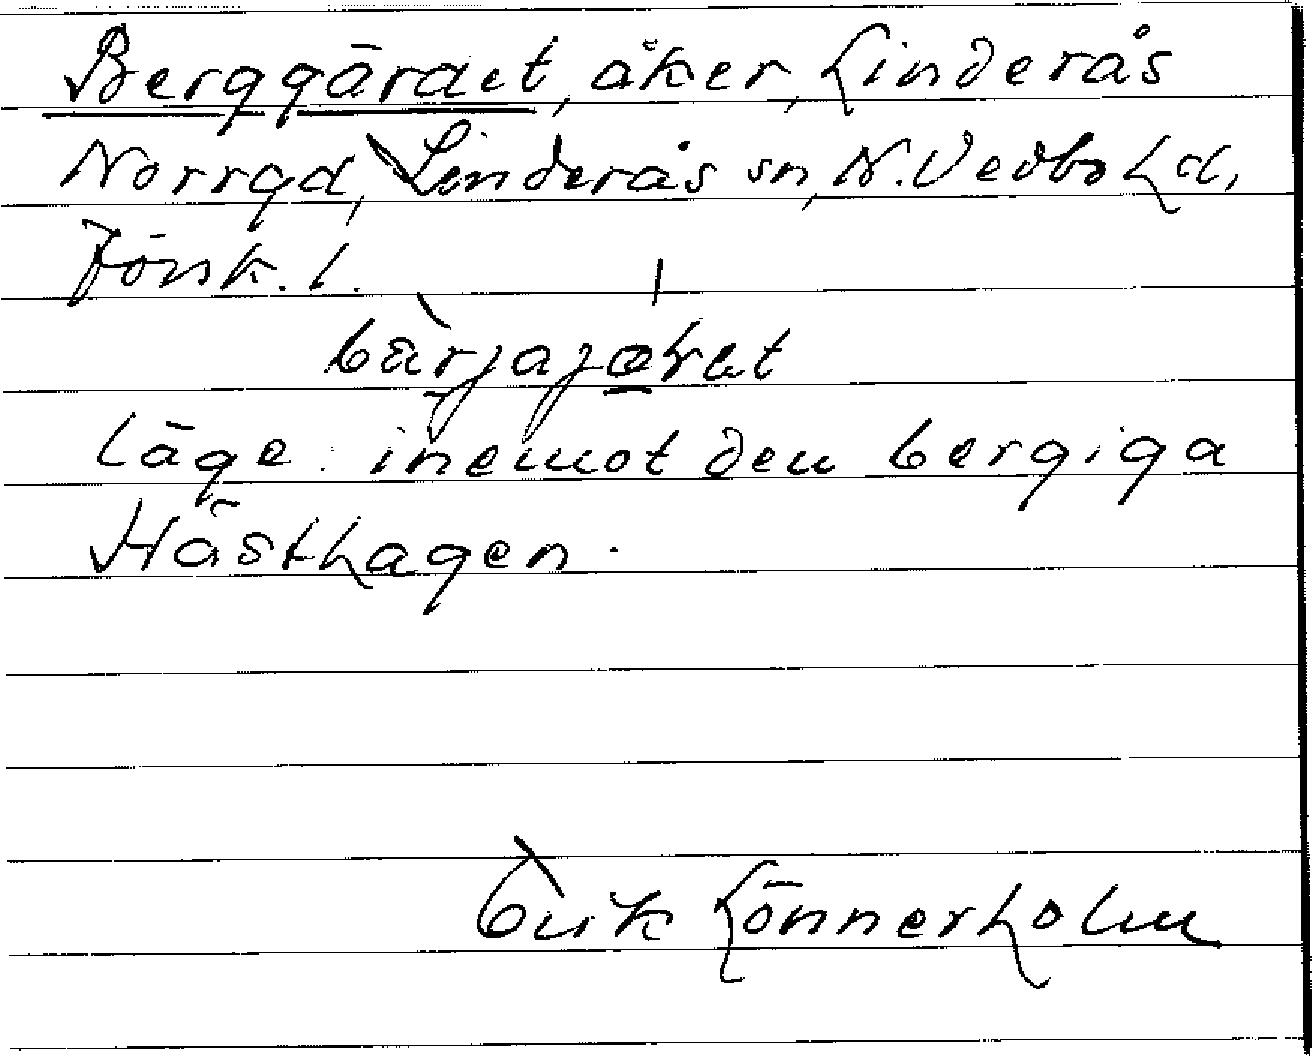 Berggärdet, åker, Linderås
Norrgd, Linderås sn, N. Vedbo hd,
Jönk. l.
bärjajǝket
Läge: inemot den bergiga
Hästhagen.
Erik Lönnerholm